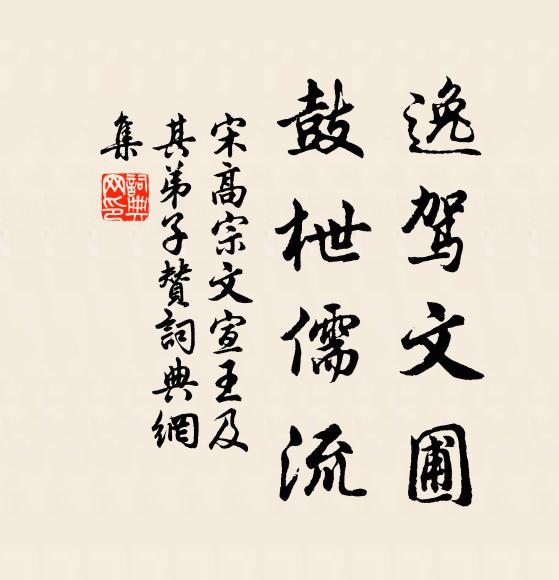 逸驾文圃
鼓枻儒流
宋高宗文宣王及
其弟子赞詞典網
集
詞典
网印